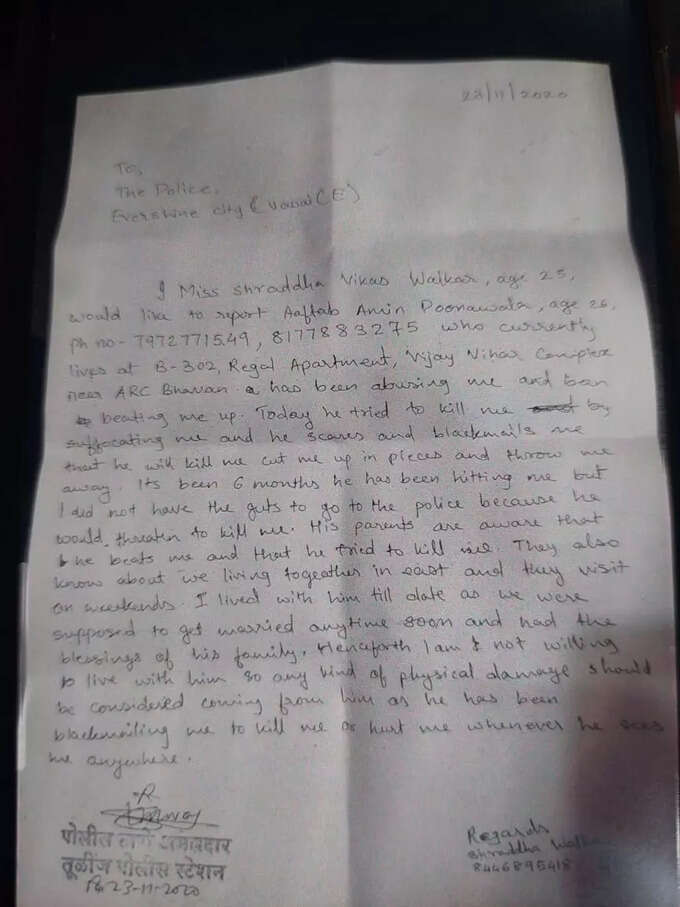 23/11/2020
To,
The Police,
Evershine city (Vasai (E)
I Miss Shraddha Vikas Walkar, age 25,
would like to report Aaftab Amin Poonawala, age 26,
ph no- 7972771549, 8177883275 who currently
lives at B-302, Regal Apartment, Vijay Vihar Complex
near ARC Bhavan has been abusing me and ben
beating me up. Today he tried to kill me by
suffocating me and he scares and blackmails me
that he will kill me cut me up in pieces and throw me
away. Its been 6 months he has been hitting me but
I did not have the guts to go to the police because he
would threatin to kill me. His parents are aware that
he beats me and that he tried to kill me. They also
know about we living togeather in east and they visit
on weekends. I lived with him till date as we were
supposed to get married anytime soon and had the
blessings of his family. Henceforth I am not willing
to live with him so any kind of physical damage should
be considered coming from him as he has been
blackmailing me to kill me or hurt me whenever he sees
me anywhere.
पोलीस ठाणे अंमलदार
तूळींज पोलीस स्टेशन
23-11-2020
Regards
Shraddha Walkar
8446895418